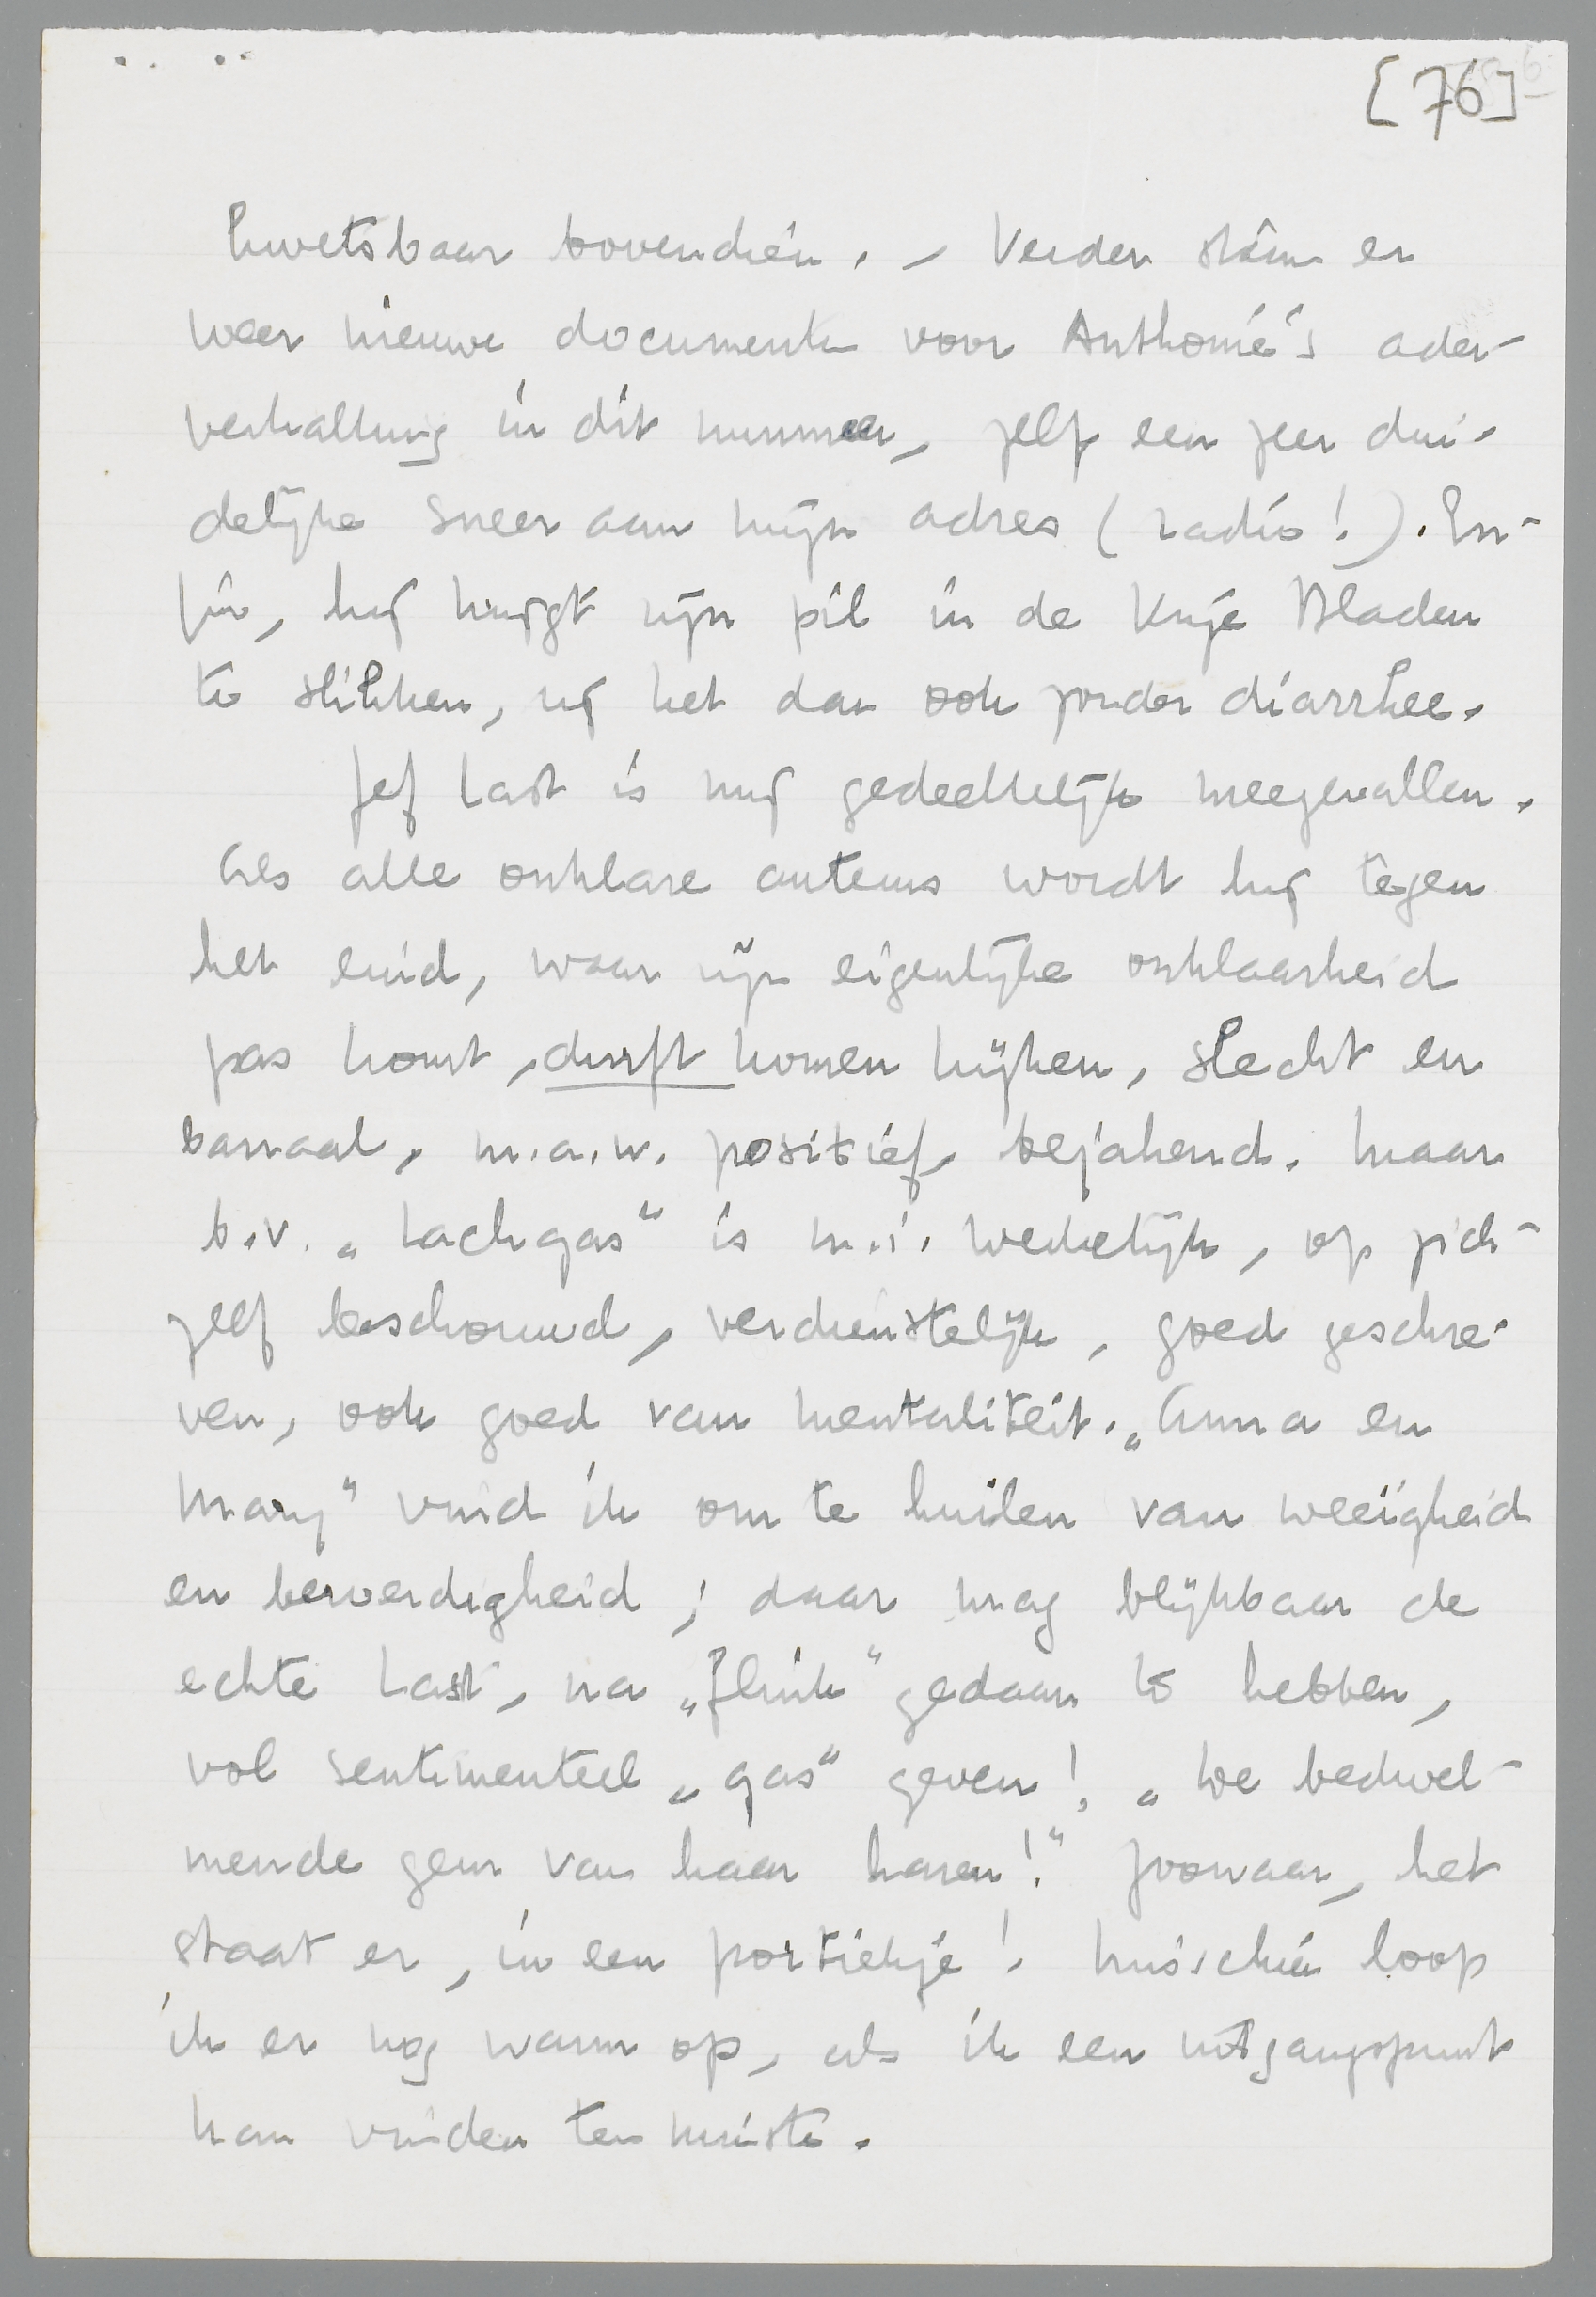 [76]
kwetsbaar bovendien. – Verder staan er
weer nieuwe documenten voor Anthonie's ader-
verkalking in dit nummer, zelfs een zeer dui-
delijke sneer aan mijn adres (radio!). En-
fin, hij krijgt zijn pil in de Vrije Bladen
te slikken, zij het dan ook zonder diarrhee.
Jef Last is mij gedeeltelijk meegevallen.
Als alle onklare auteurs wordt hij tegen
het eind, waar zijn eigenlijke onklaarheid
pas komt, durft komen kijken, slecht en
banaal, m.a.w. positief, bejahend. Maar
b.v. „Lachgas" is m.i. werkelijk, op zich-
zelf beschouwd, verdienstelijk, goed geschre-
ven, ook goed van mentaliteit. „Anna en
Mary" vind ik om te huilen van weeïgheid
en bewerdigheid; daar mag blijkbaar de
echte Last, na „flink" gedaan te hebben,
vol sentimenteel „gas" geven! „De bedwel-
mende geur van haar haren!" Zoowaar, het
staat er, in een portiekje! Misschien loop
ik er nog warm op, als ik een uitgangspunt
kan vinden ten minste.